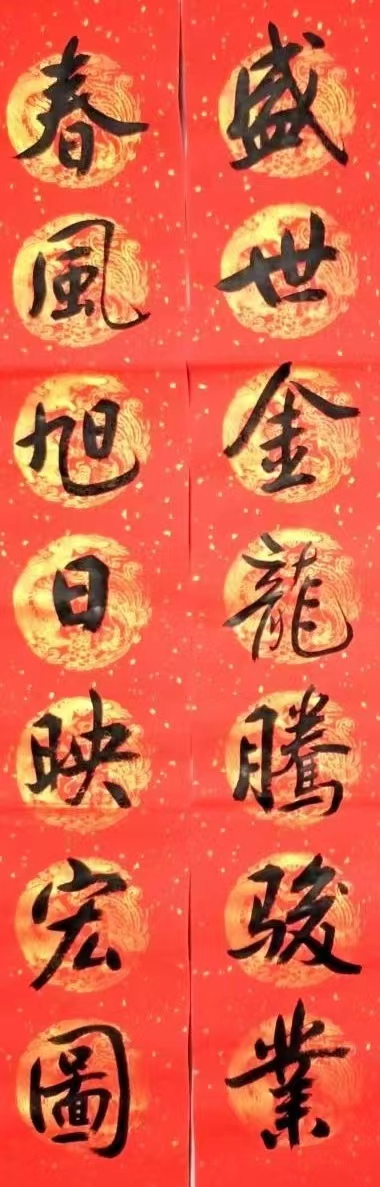 盛世金龍騰駿業
春風旭日映宏圖